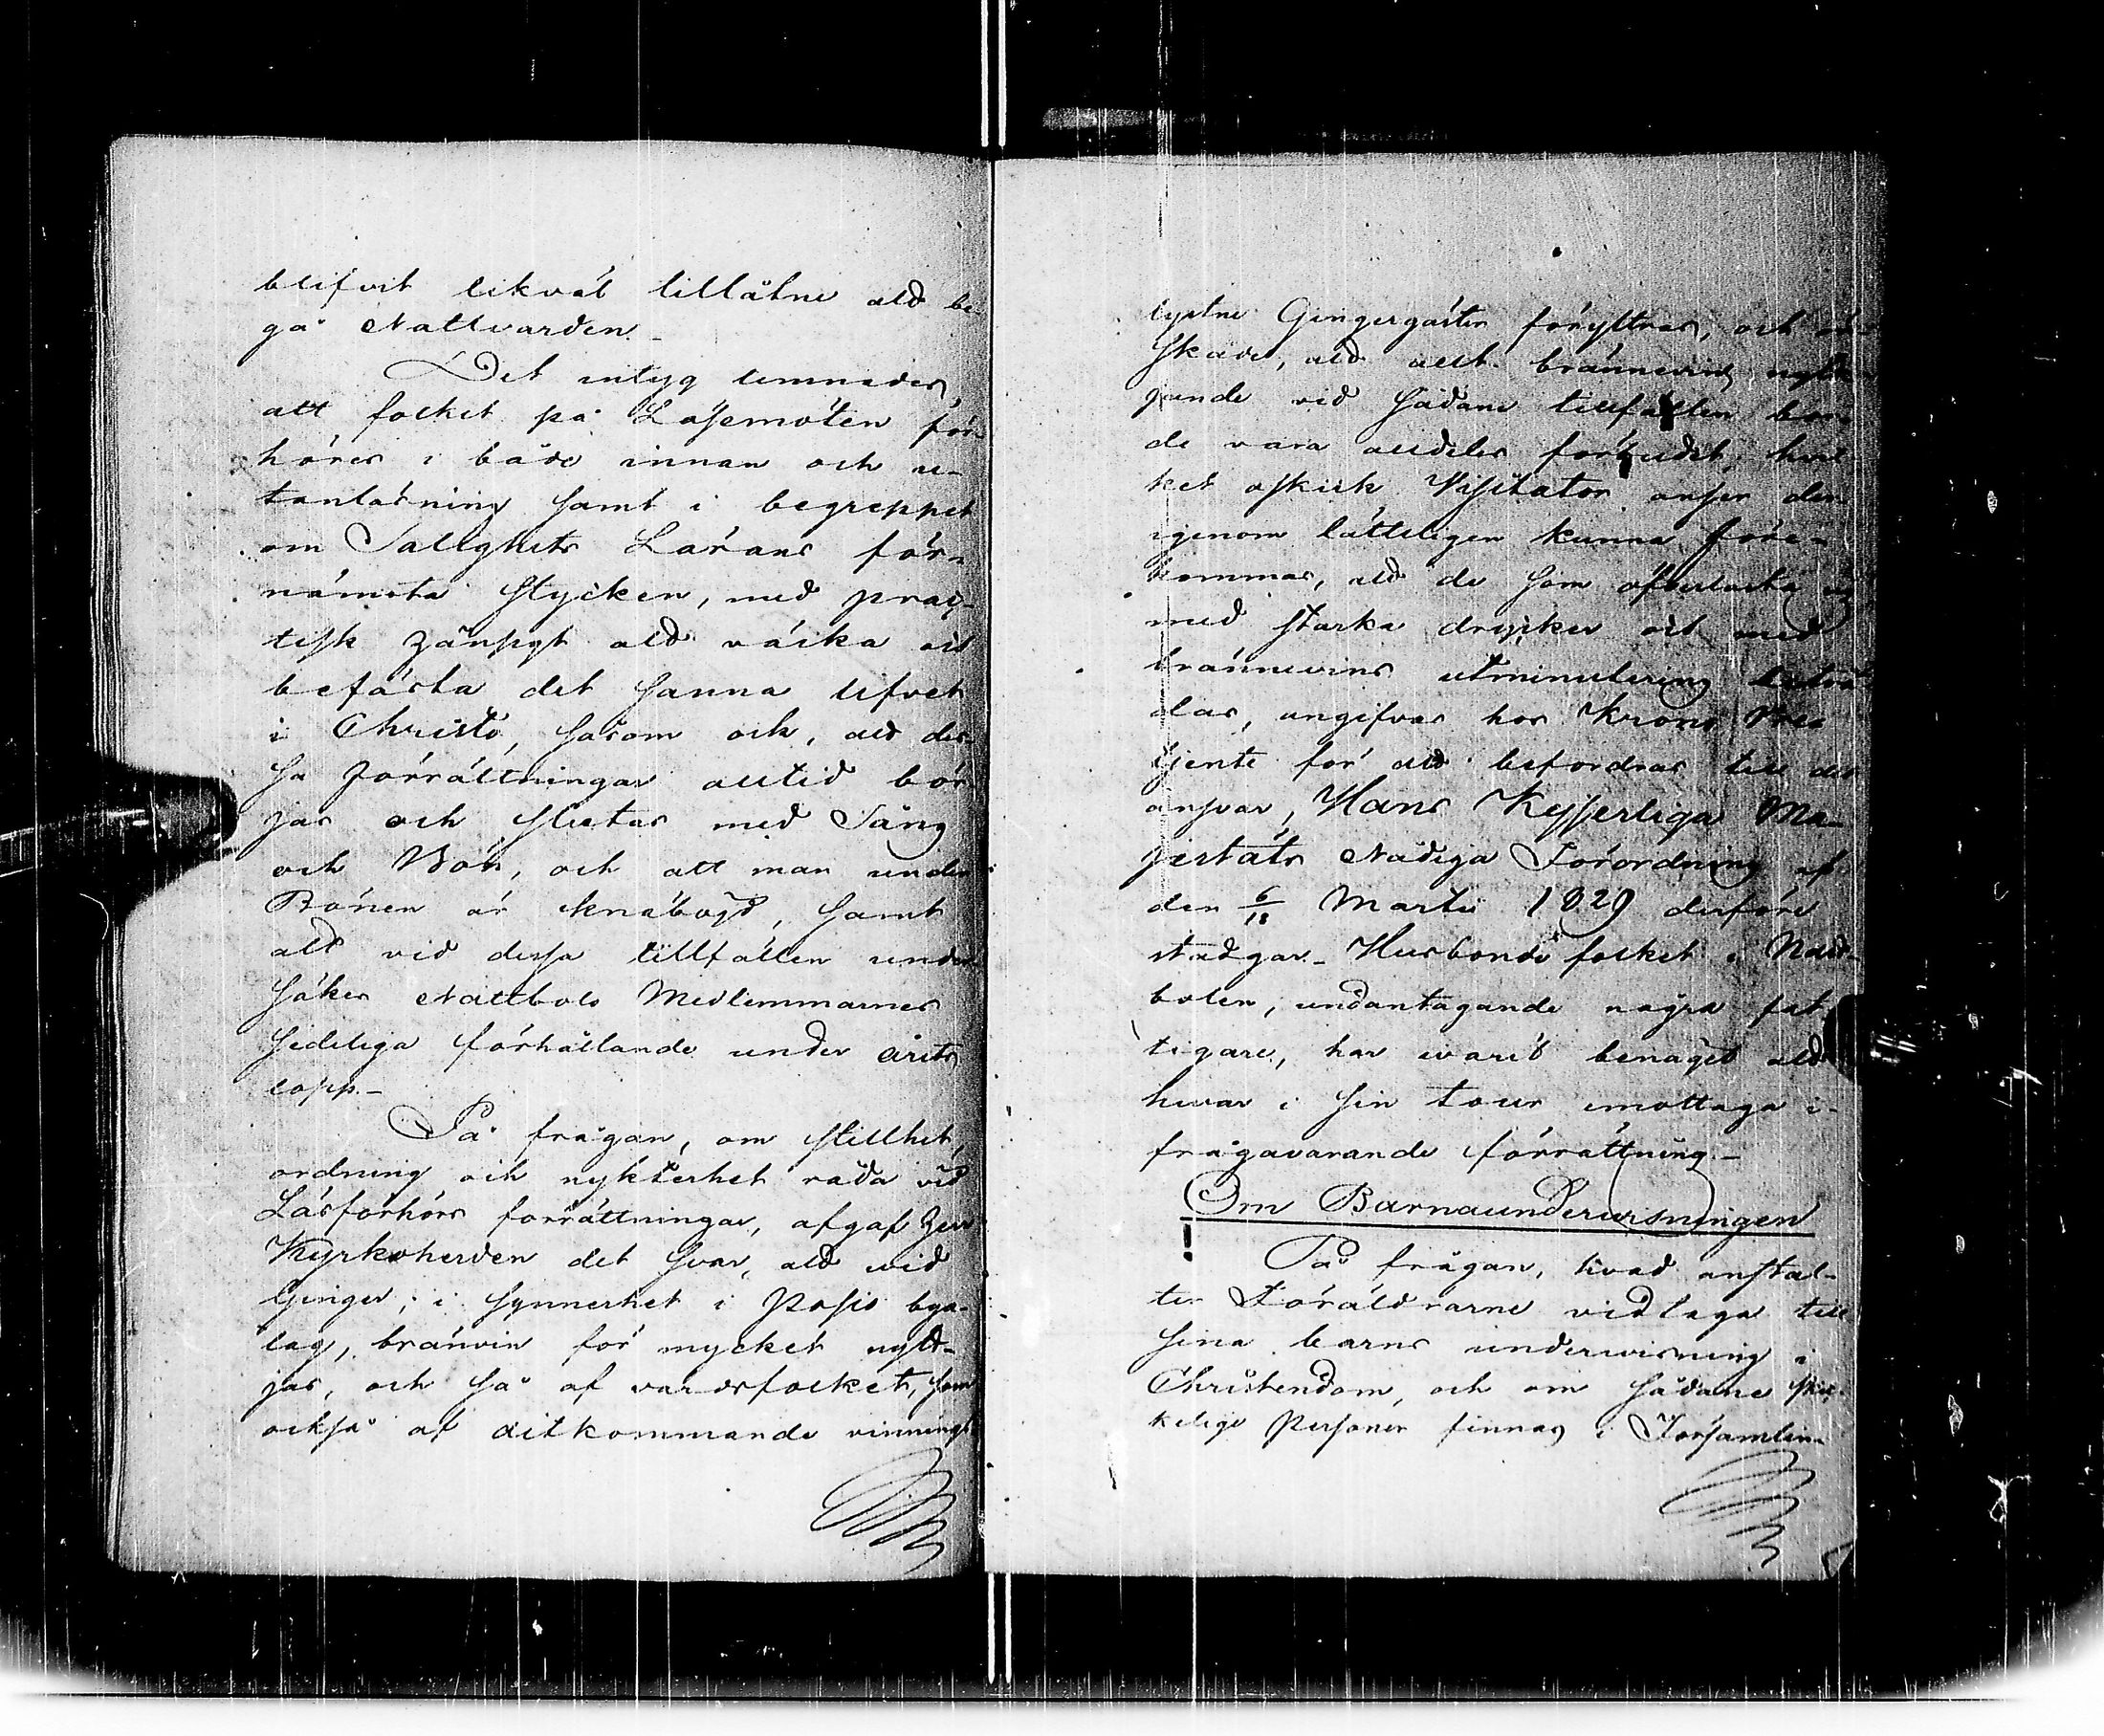 blifvit likväl tillåtne att be-
gå Nattvarden.-
Det intyg lemnades,
att folket på Läsemöten för-
höres i både innan och u-
tanläsning samt i begreppet
om Salighets Lärans för-
nämsta stycken, med prac-
tisk hänsyn att väcka och
befästa det sanna lifvet
i Christo, såsom ock, att des-
sa förrättningar alltid bör-
jas och slutas med Sång
och Bön, och att man under
Bönen är knäböjd, samt
att vid dessa tillfällen under-
sökes Nattbols Medlemmarnes
sedeliga förhållande under årets
lopp.-
På frågan, om stillhet,
ordning och nykterhet råda vid
Läsförhörs förrättningar, afgaf Herr
Kyrkoherden det svar, att wid
Ginger, i synnerhet i Posio bya-
lag, bränvin för mycket nytt-
jas, och så af värdsfolket, som
också af ditkommande vinnings
lystne Gingergäster föryttras, och
skades, att allt brännevins nytt-
jande vid sådane tillfällen bor-
de vara alldeles förbudet, hvil-
ket Visitator anser der-
igenom lätteligen kunna före-
kommas, att de som öfverlasta sig
med starka drycker och med
brännevins utminutering beträ-
das, angifvas hos Krono Be-
tjente för att befordras till det
ansvar, Hans Kejserliga Ma-
jestäts Nådiga Förordning af
den 6/18 Martii 1829 derföre
stadgar.- Husbonde folket i Natt-
bolen, undantagande några fat-
tigare, har warit benäget att
hwar i sin tour emottaga i-
frågavarande förrättning.-
Om Barnaunderwisningen
På frågan, hvad anstal-
ter Föräldrarne vidtaga till
sina barns underwisning i
Christendom, och om sådane skic-
kelige Personer finnas i Församlin-